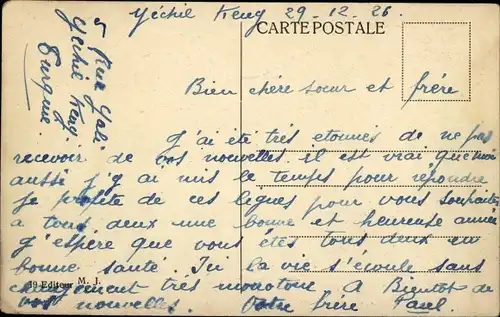 Yéchil Keuy 29-12-26
CARTE POSTALE
5 Rue Yali
Yéchil Keuy
Turquie
Bien chère sœur et frére
J'ai été trés etonnés de ne pas
recevoir de vos nouvelles il est vrai que moi
aussi j'y ai mis le temps pour répondre
je profite de ces lignes pour vous souhaiter
a tous deux une bonne et heureuse année
J'éspère que vous étes tous deux en
bonne santé. Ici la vie s'écoule sans
changement trés monotone. A Bientot de
vos nouvelles. Votre frère Paul.
19 Editeur M. J.